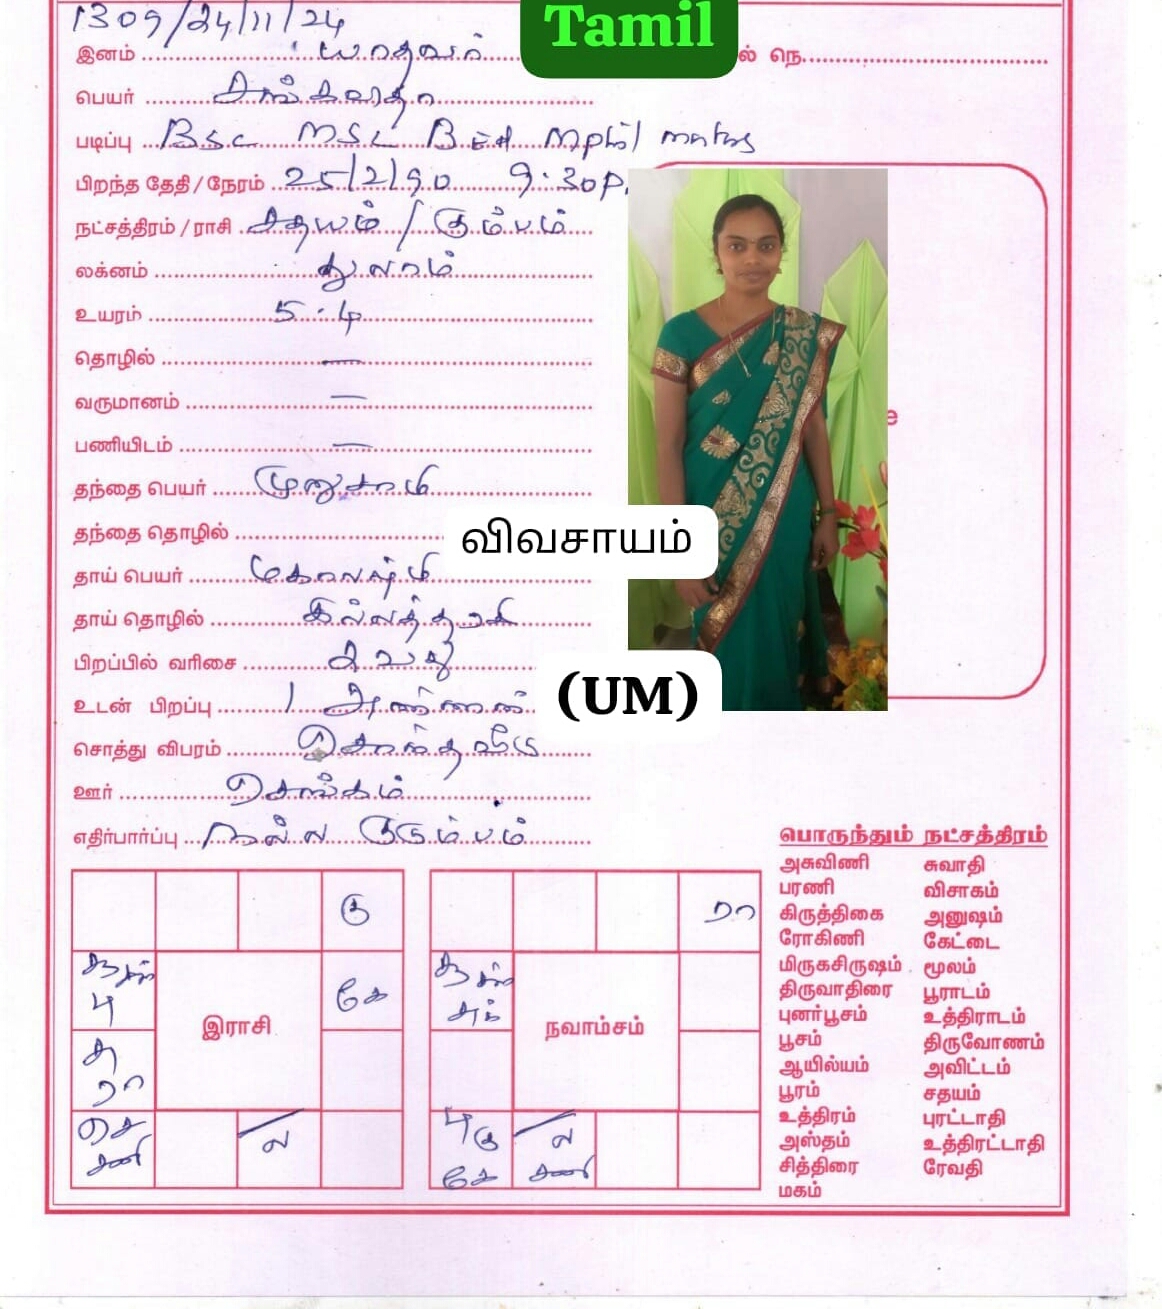 1309/24/11/24
Tamil
இனம் யாதவர் ல் நெ.
பெயர் சங்கவிதா
படிப்பு Bsc MSc B Ed Mphil maths
பிறந்த தேதி / நேரம் 25/2/90 9:30p.
நட்சத்திரம் / ராசி சதயம் / கும்பம்
லக்னம் துலாம்
உயரம் 5.4
தொழில் —
வருமானம் —
பணியிடம் —
தந்தை பெயர் முனுசாமி
தந்தை தொழில் விவசாயம்
தாய் பெயர் மகாலஷ்மி
தாய் தொழில் இல்லத்தரசி
பிறப்பில் வரிசை 2 வது
உடன் பிறப்பு 1 அண்ணன் (UM)
சொத்து விபரம் சொந்த வீடு
ஊர் செங்கம்
எதிர்பார்ப்பு நல்ல குடும்பம்
e
கு
சூ சுக்
பு
கே
இராசி
ச
ரா
செ
சனி
ல
ரா
சூ சுக்
நவாம்சம்
பு கு
கே
ல
சனி
பொருந்தும் நட்சத்திரம்
அசுவிணி சுவாதி
பரணி விசாகம்
கிருத்திகை அனுஷம்
ரோகிணி கேட்டை
மிருகசிருஷம் மூலம்
திருவாதிரை பூராடம்
புனர்பூசம் உத்திராடம்
பூசம் திருவோணம்
ஆயில்யம் அவிட்டம்
பூரம் சதயம்
உத்திரம் புரட்டாதி
அஸ்தம் உத்திரட்டாதி
சித்திரை ரேவதி
மகம்